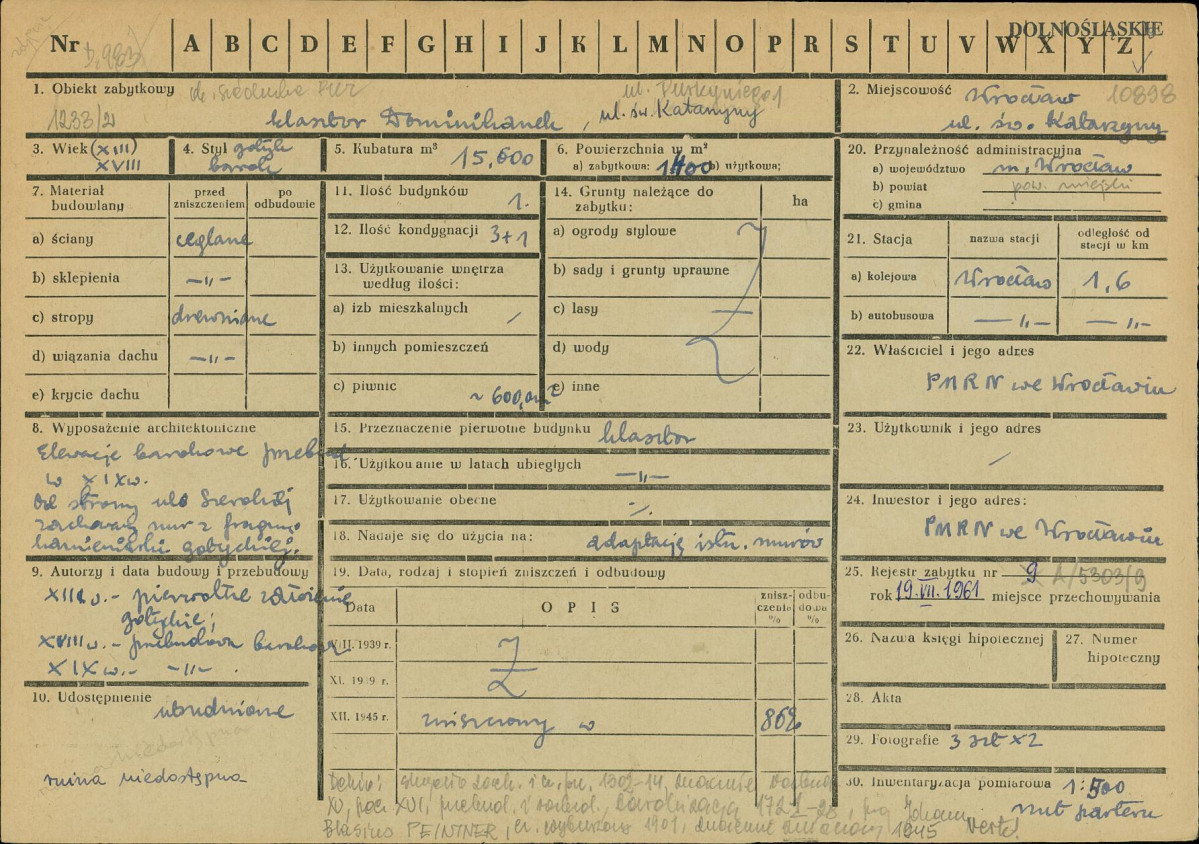 DOLNOŚLĄSKIE
Nr A B C D E F G H I J K L M N O P R S T U V W X Y Z
1. Obiekt zabytkowy
1233/2
klasztor Dominikanek, ul. św. Katarzyny
2. Miejscowość Wrocław 10898
ul. św. Katarzyny
3. Wiek (XIII)
XVIII
4. Styl gotyk
barok
5. Kubatura m³ 15,600
6. Powierzchnia w m²
a) zabytkowa: 1400 b) użytkowa:
20. Przynależność administracyjna
a) województwo m. Wrocław
b) powiat pow. miejski
c) gmina
7. Materiał budowlany
przed zniszczeniem
po odbudowie
a) ściany ceglane
b) sklepienia —„—
c) stropy drewniane
d) wiązania dachu —„—
e) krycie dachu
11. Ilość budynków 1.
12. Ilość kondygnacji 3+1
13. Użytkowanie wnętrza
według ilości:
a) izb mieszkalnych /
b) innych pomieszczeń
c) piwnic ~ 600, m²
14. Grunty należące do
zabytku: ha
a) ogrody stylowe
b) sady i grunty uprawne
c) lasy
d) wody
e) inne
21. Stacja nazwa stacji odległość od
stacji w km
a) kolejowa Wrocław 1,6
b) autobusowa —„— —„—
22. Właściciel i jego adres
PMRN we Wrocławiu
23. Użytkownik i jego adres
/
24. Inwestor i jego adres:
PMRN we Wrocławiu
25. Rejestr zabytku nr 9 A/5303/9
rok 19.VII.1961 miejsce przechowywania
26. Nazwa księgi hipotecznej
27. Numer
hipoteczny
28. Akta
29. Fotografie 3 szt x 2
30. Inwentaryzacja pomiarowa 1:500
rzut parteru
8. Wyposażenie architektoniczne
Elewacje barokowe przebud.
w XIX w.
Od strony
zachowały mur z fragm.
kamieniarki gotyckiej.
9. Autorzy i data budowy i przebudowy
XIII w. - pierwotne założenie
gotyckie;
XVIII w. - przebudowa barokowa
XIX w. - —„— .
10. Udostępnienie utrudnione
niedostępna
ruina niedostępna
15. Przeznaczenie pierwotne budynku klasztor
16. Użytkowanie w latach ubiegłych —„—
17. Użytkowanie obecne
18. Nadaje się do użycia na: adaptację istn. murów
19. Data, rodzaj i stopień zniszczeń i odbudowy
Data OPIS znisz-
czenie
% odbu-
dowa
%
VIII. 1939 r.
XI. 1939 r.
XII. 1945 r. zniszczony w 86%
1302-14, znacznie
XV, pocz XVI, przebud. i rozbud., barokizacja
Blasius PEINTNER, cz. wyburzony 1901, 1945